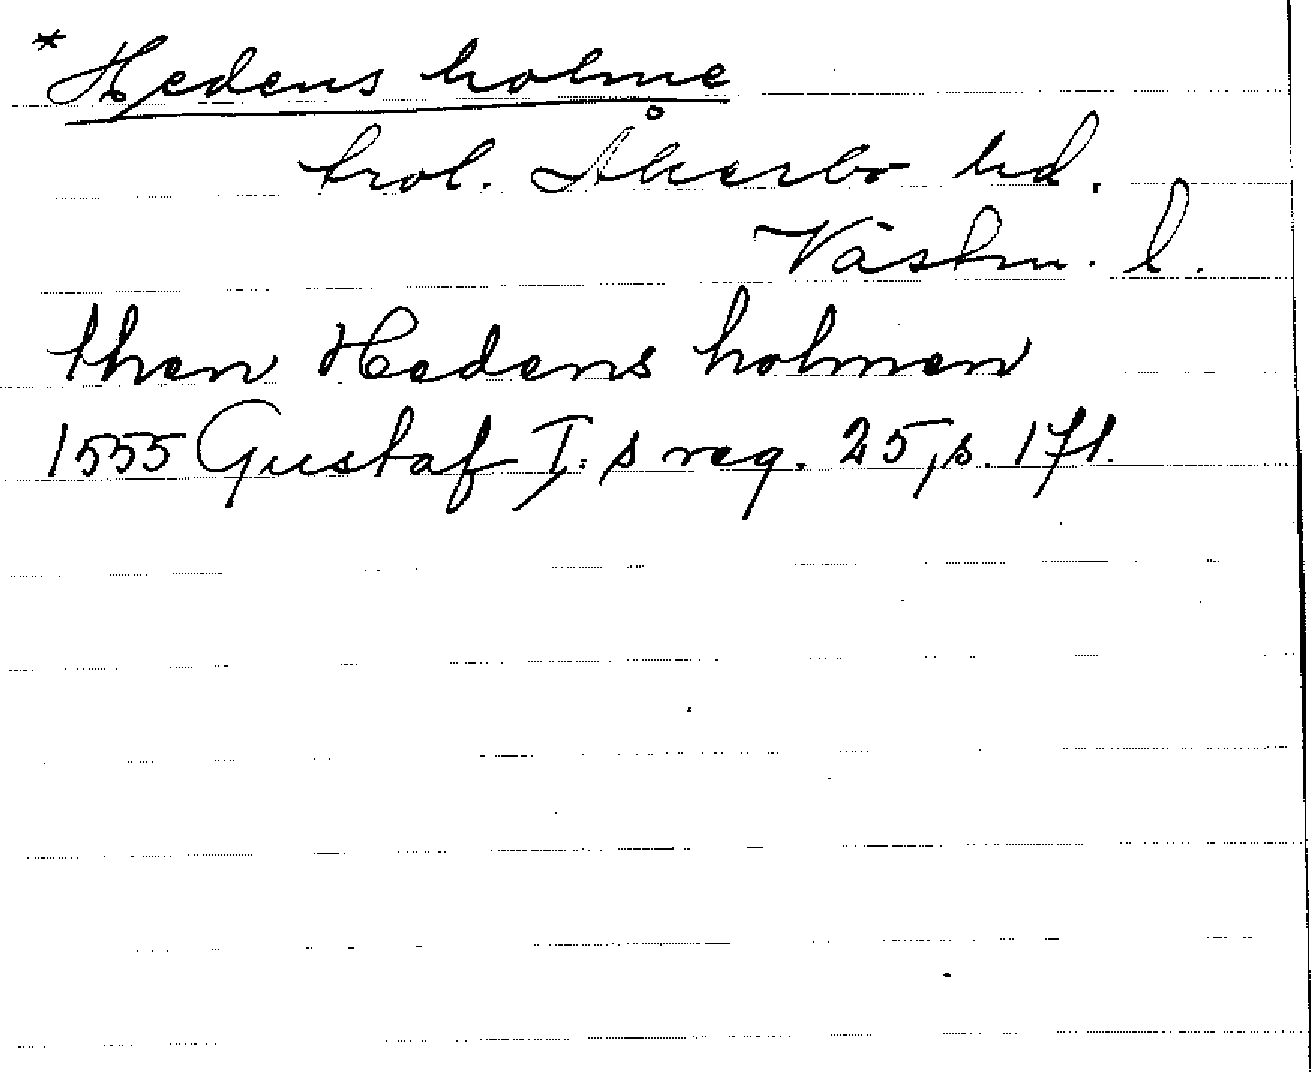 * Hedens holme
trol. Åkerbo hd.
Västm. l.
then Hedens holmen
1555 Gustaf I:s reg. 25, s. 171.